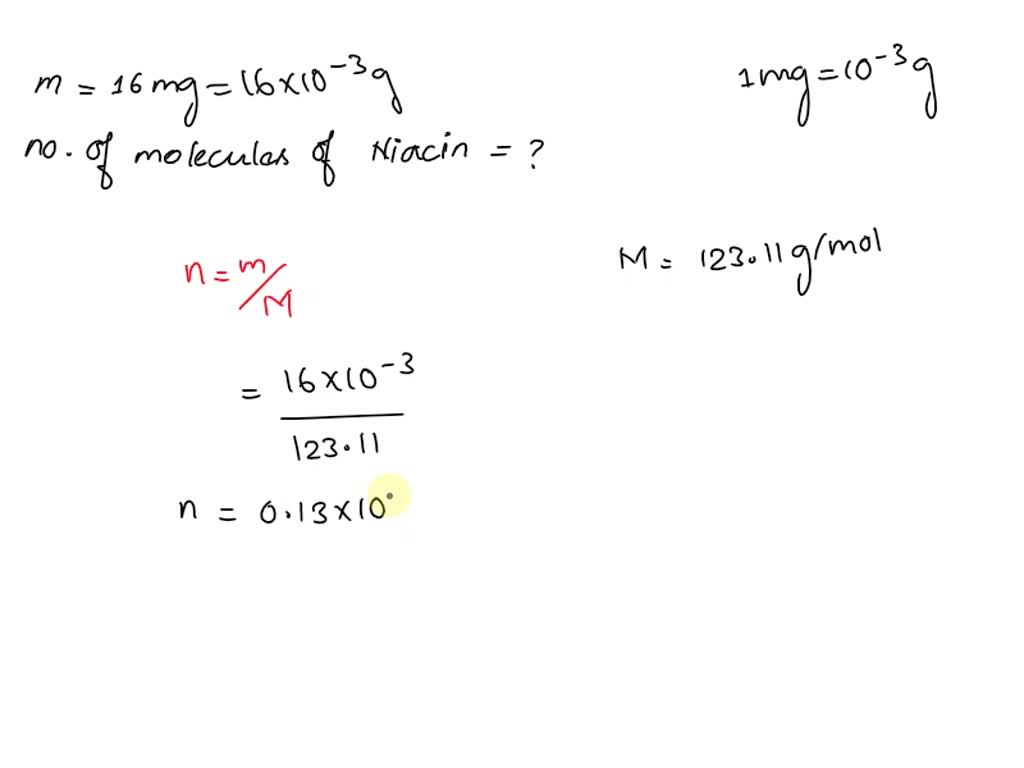 m = 16 mg = 16×10⁻³ g
1 mg = 10⁻³ g
no. of molecules of Niacin = ?
n = m/M
M = 123.11 g/mol
= 16×10⁻³
123.11
n = 0.13×10